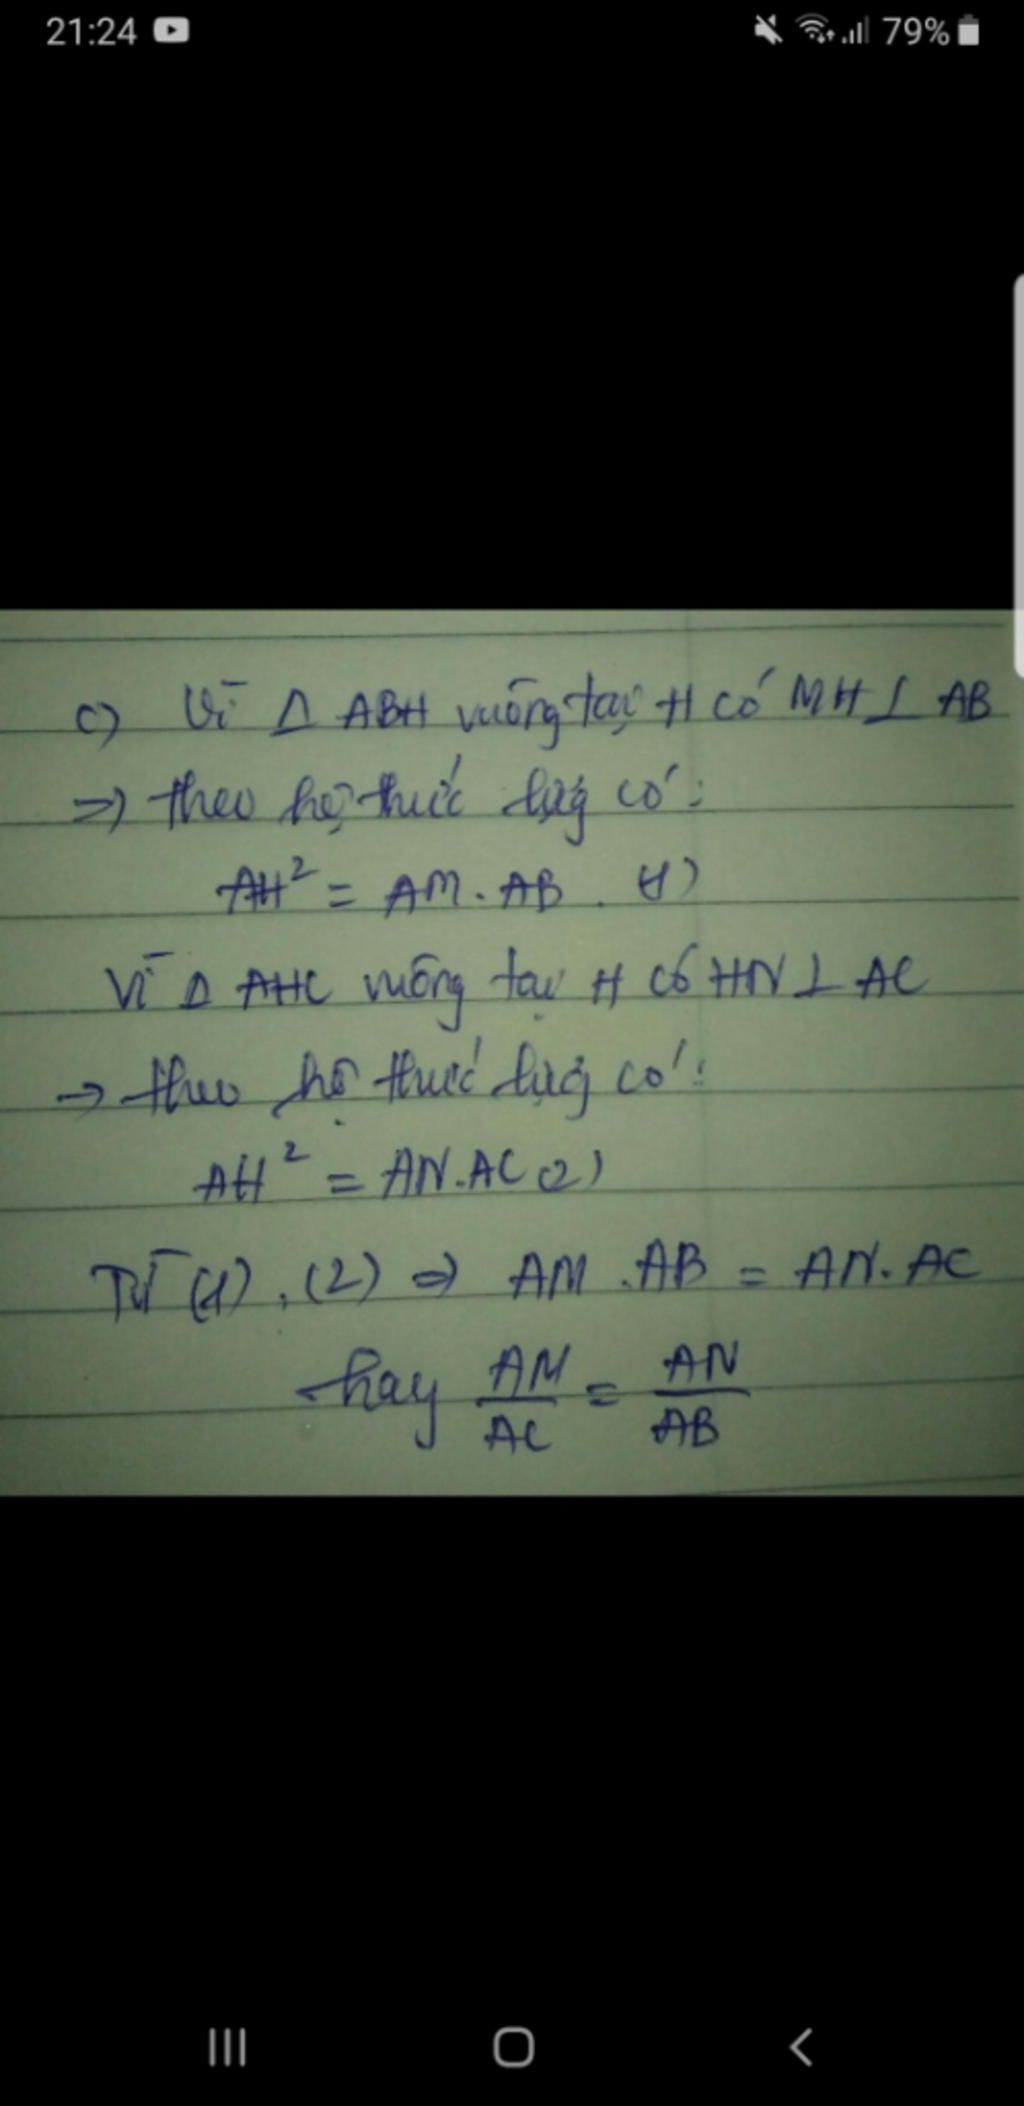 21:24 79%
c) Vì Δ ABH vuông tại H có MH ⊥ AB
=> theo hệ thức lượg có:
AH² = AM . AB . (1)
Vì Δ AHC vuông tại H có HN ⊥ AC
→ theo hệ thức lượg có:
AH² = AN.AC (2)
Từ (1), (2) => AM . AB = AN. AC
hay AM/AC = AN/AB